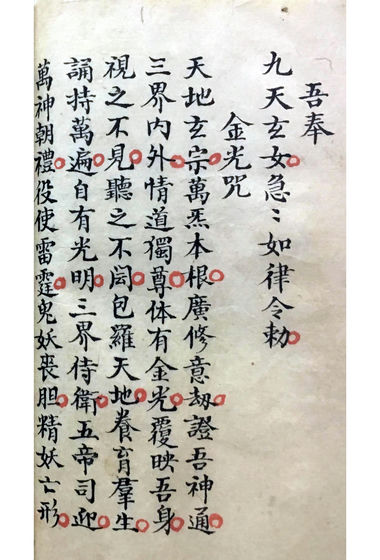 吾奉
九天玄女急〻如律令勅
金光咒
天地玄宗萬炁本根廣修意劫證吾神通
三界內外情道獨尊体有金光覆映吾身
視之不見聽之不闻包羅天地養育羣生
誦持萬遍自有光明三界侍衛五帝司迎
萬神朝禮役使雷霆鬼妖喪胆精妖亡形